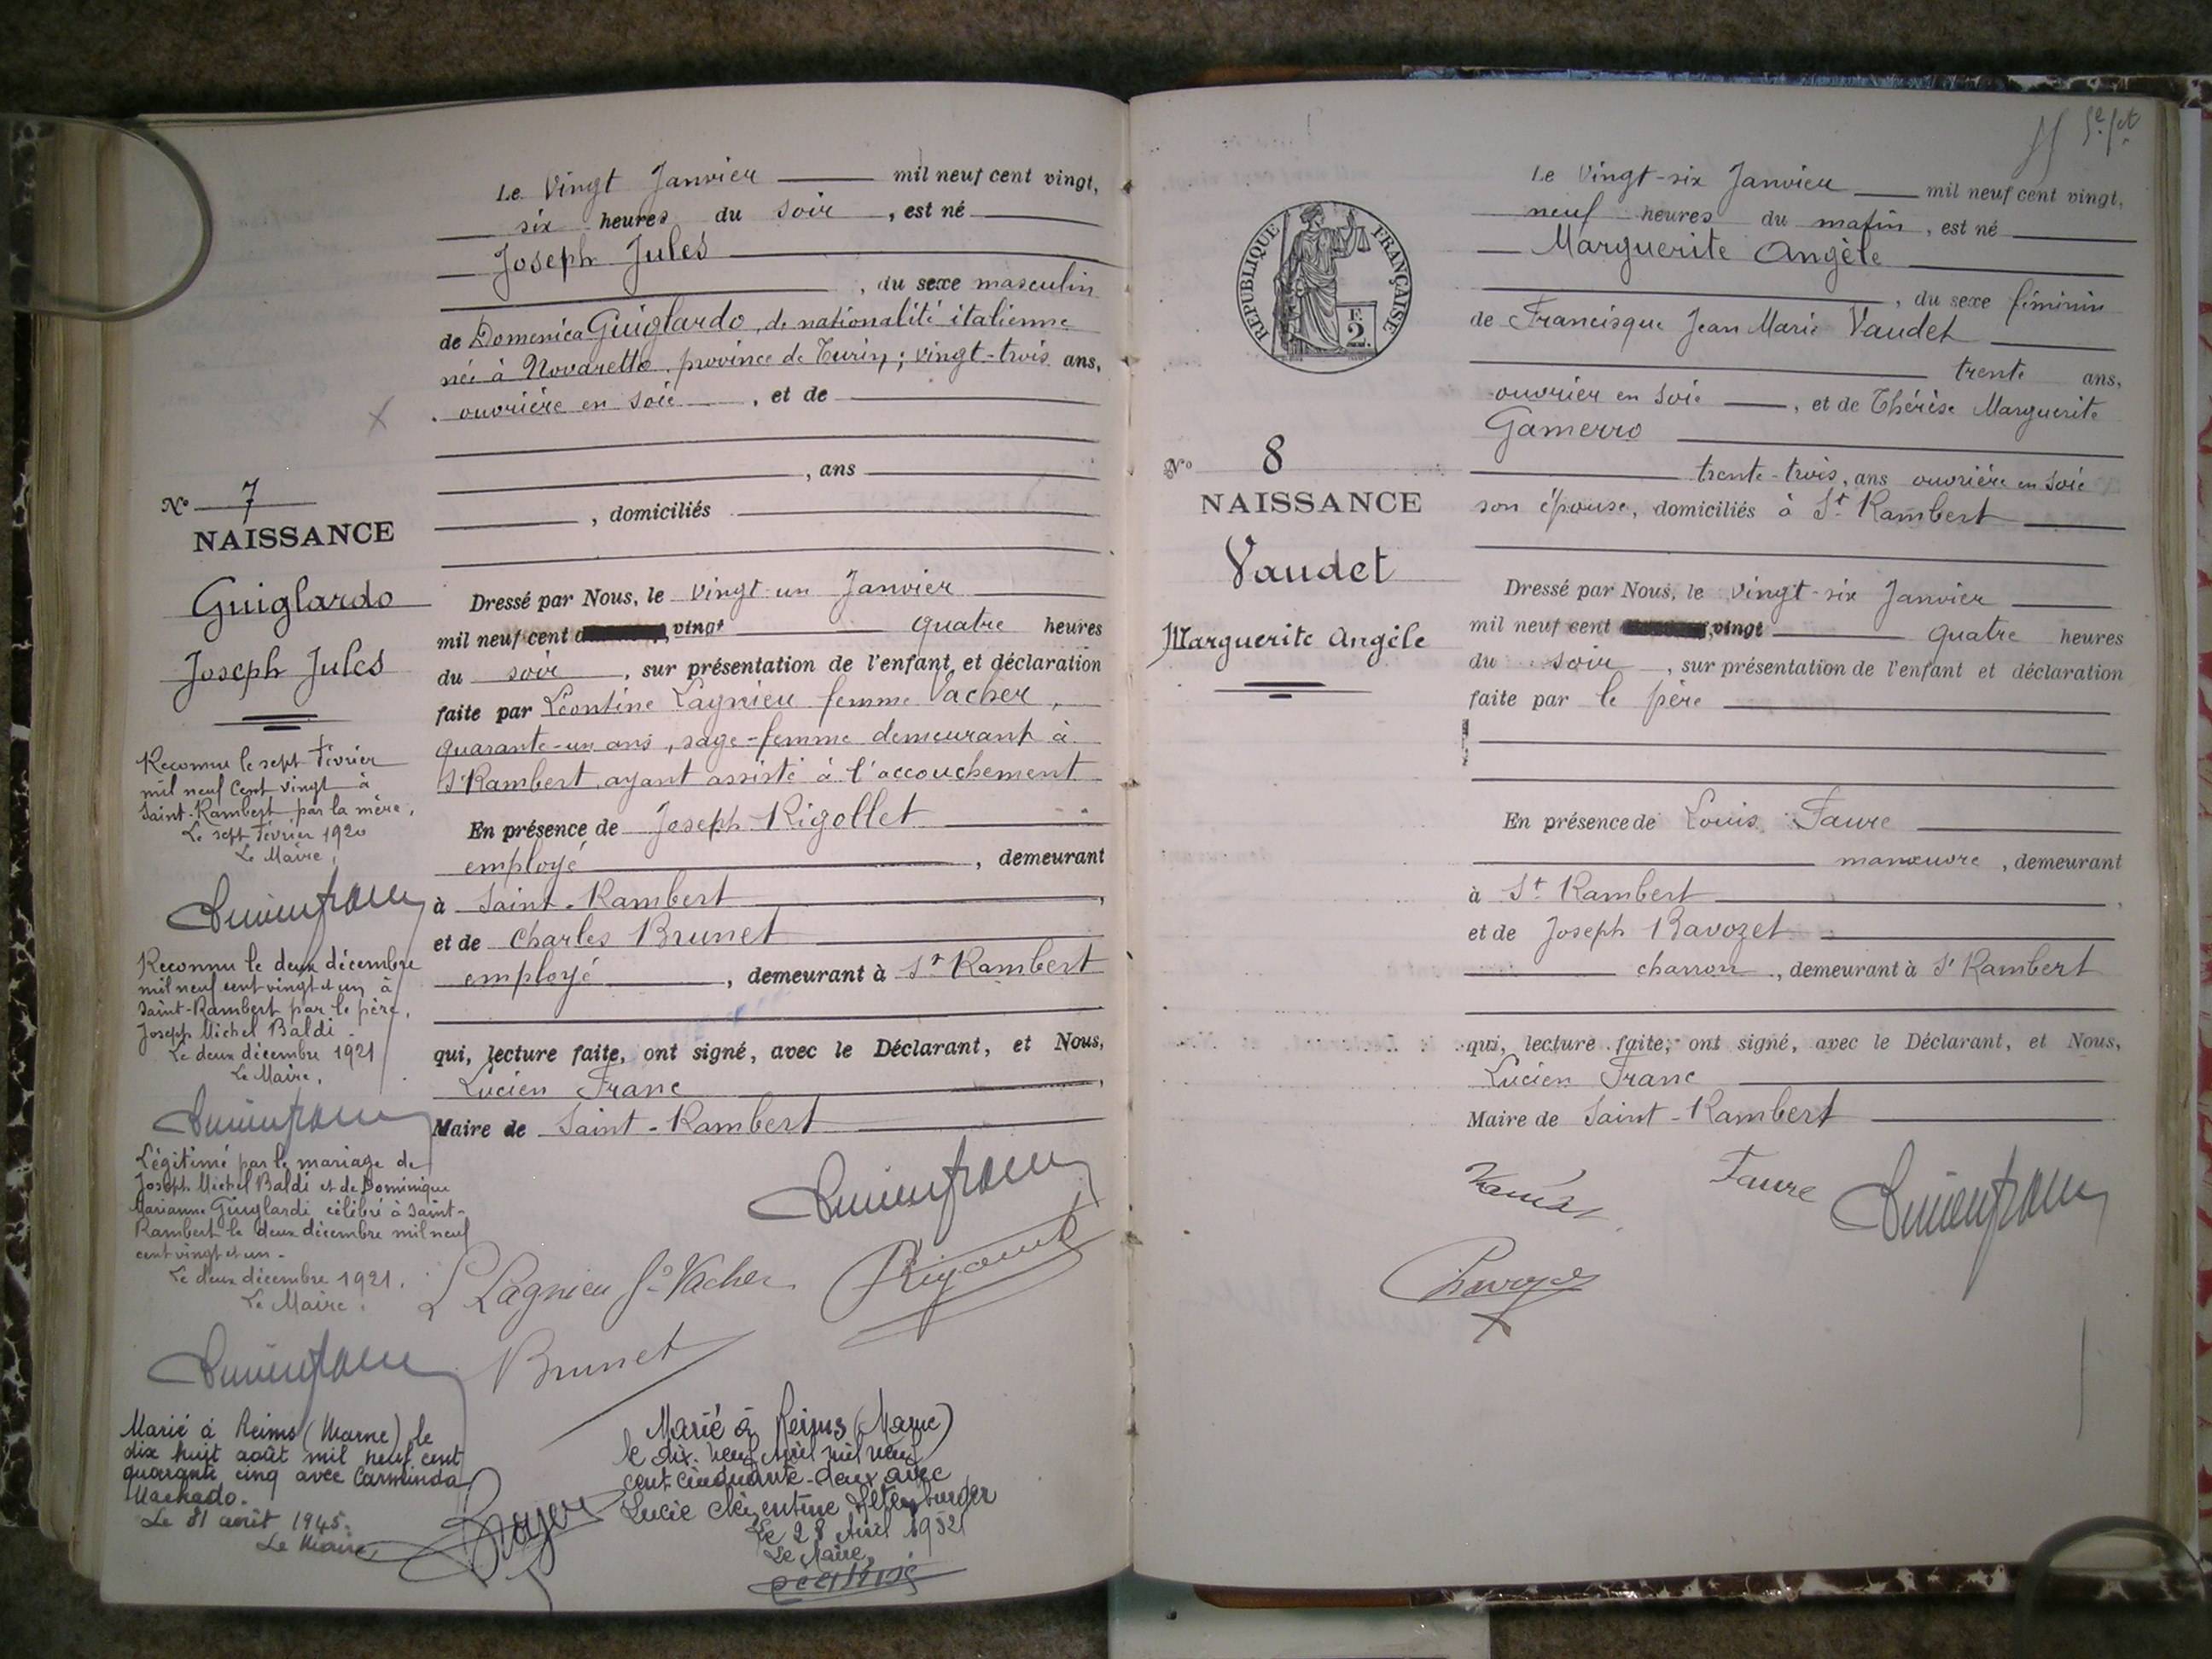 Le Vingt Janvier mil neuf cent vingt,
six heures du soir, est né
Joseph Jules
, du sexe masculin
de Domenica Guiglardo, de nationalité italienne
née à Novaretto, province de Turin; vingt-trois ans,
ouvrière en soie, et de
, ans
, domiciliés
N° 7
NAISSANCE
Guiglardo
Joseph Jules
Dressé par Nous, le vingt-un Janvier
mil neuf cent vingt quatre heures
du soir, sur présentation de l'enfant et déclaration
faite par Léontine Lagnieu femme Vacher,
quarante-un ans, sage-femme demeurant à
St Rambert, ayant assisté à l'accouchement
En présence de Joseph Rigollet
employé, demeurant
à Saint-Rambert,
et de Charles Brunet
employé, demeurant à St Rambert
qui, lecture faite, ont signé, avec le Déclarant, et Nous,
Lucien Franc,
Maire de Saint-Rambert
L Lagnieu fe Vacher
Brunet
Reconnu le sept Février
mil neuf Cent vingt à
Saint-Rambert par la mère.
Le sept Février 1920
Le Maire,
Reconnu le deux décembre
mil neuf cent vingt et un à
Saint-Rambert par le père,
Joseph Michel Baldi.
Le deux décembre 1921
Le Maire,
Légitimé par le mariage de
Joseph Michel Baldi et de Dominique
Marianne Guiglardi célébré à Saint-
Rambert le deux décembre mil neuf
cent vingt et un.
Le deux décembre 1921.
Le Maire.
Marié à Reims (Marne) le
dix huit août mil neuf cent
quarante cinq avec Carminda
Machado.
Le 31 août 1945.
Le Maire,
Marié à Reims (Marne)
le dix-neuf Avril mil neuf
cent cinquante-deux avec
Lucie Clémentine
Le 28 Avril 1952
Le Maire,
Sept
Le Vingt-six Janvier mil neuf cent vingt,
neuf heures du matin, est né
Marguerite Angèle
, du sexe féminin
de Francisque Jean Marie Vaudet
trente ans,
ouvrier en soie, et de Thérèse Marguerite
Gamerro
trente-trois, ans ouvrière en soie
son épouse, domiciliés à St Rambert
RÉPUBLIQUE FRANÇAISE
F.
2.
N° 8
NAISSANCE
Vaudet
Marguerite Angèle
Dressé par Nous, le vingt-six Janvier
mil neuf cent vingt quatre heures
du soir, sur présentation de l'enfant et déclaration
faite par le père
En présence de Louis Faure
manœuvre, demeurant
à St Rambert,
et de Joseph Ravozet
charron, demeurant à St Rambert
qui, lecture faite, ont signé, avec le Déclarant, et Nous,
Lucien Franc
Maire de Saint-Rambert
Faure